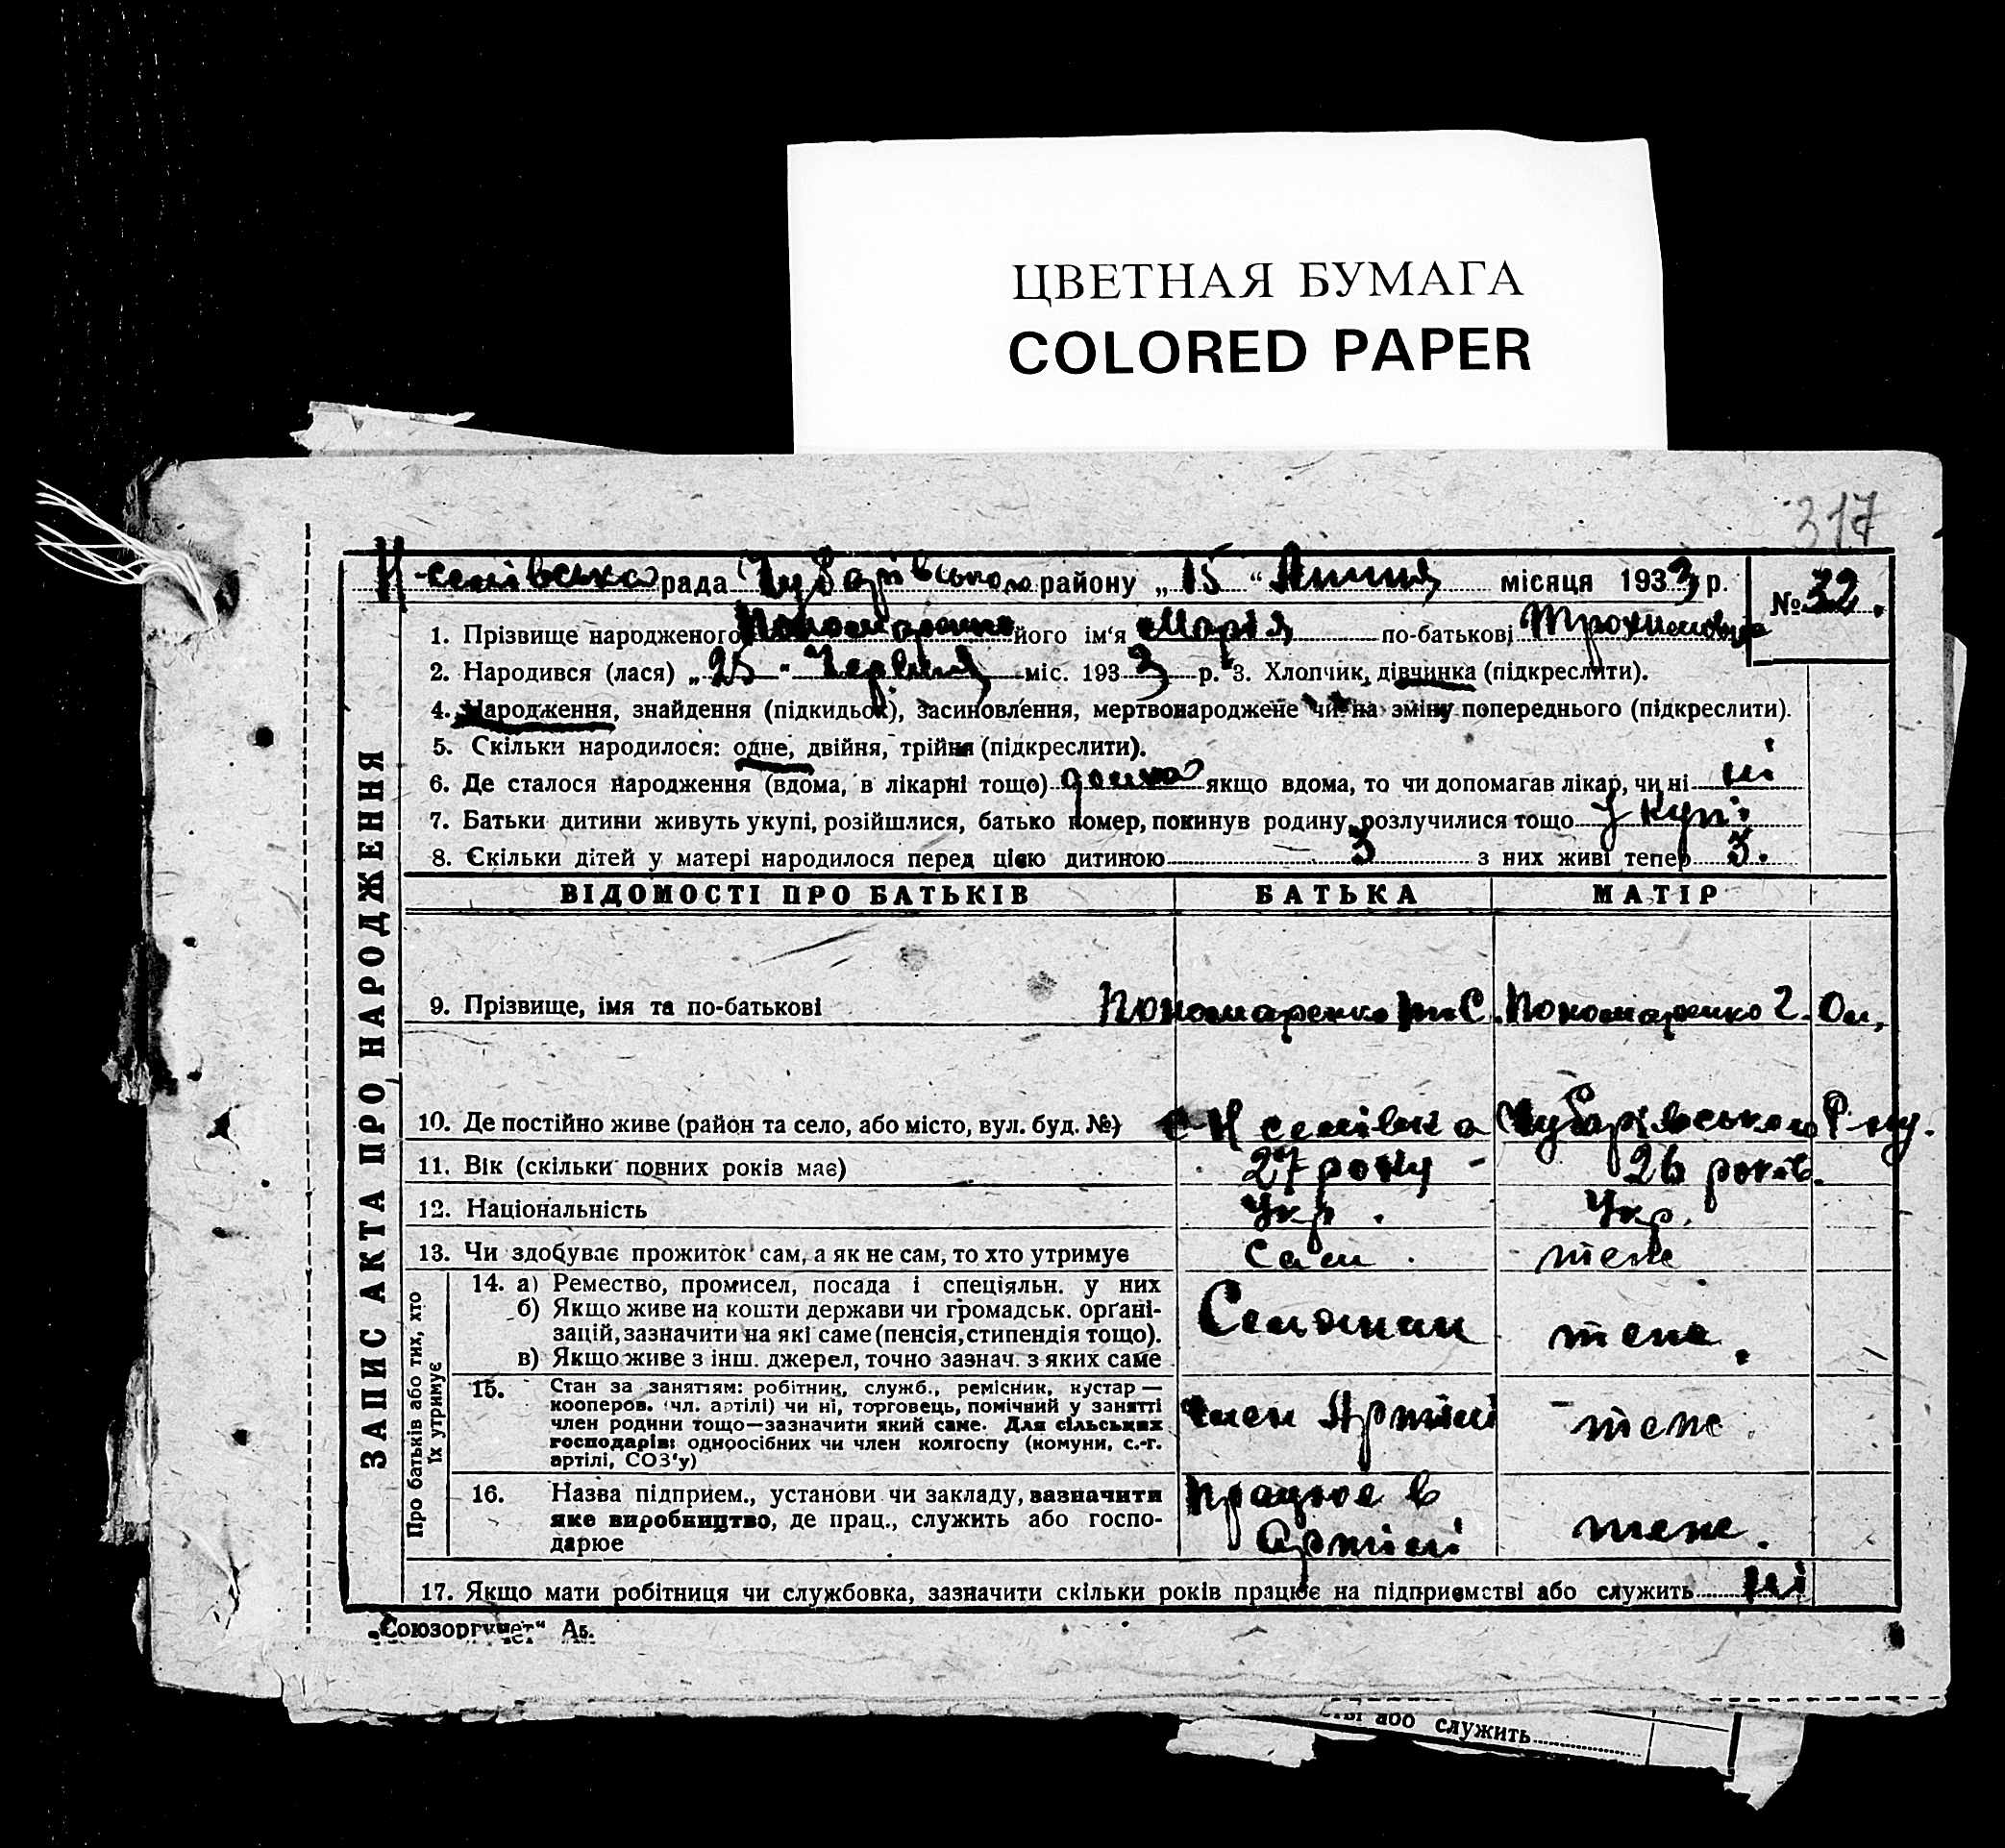 ЦВЕТНАЯ БУМАГА
COLORED PAPER
317
рада Чубарівського району „ 15 “ Липня місяця 1933 р.
№ 32.
1. Прізвище народженого Пономаренко його ім'я Марія по-батькові Трохимовна
2. Народився (лася) „ 25 " Червня міс. 1933 р. 3. Хлопчик, дівчинка (підкреслити).
4. Народження, знайдення (підкидьок), засиновлення, мертвонароджене чи на зміну попереднього (підкреслити).
5. Скільки народилося: одне, двійня, трійня (підкреслити).
6. Де сталося народження (вдома, в лікарні тощо) дома якщо вдома, то чи допомагав лікар, чи ні ні
7. Батьки дитини живуть укупі, розійшлися, батько помер, покинув родину, розлучилися тощо у купі
8. Скільки дітей у матері народилося перед цією дитиною 3 з них живі тепер 3.
ЗАПИС АКТА ПРО НАРОДЖЕННЯ
ВІДОМОСТІ ПРО БАТЬКІВ БАТЬКА МАТІР
9. Прізвище, імя та по-батькові Пономаренко Т. С. Пономаренко Г. Ом,
10. Де постійно живе (район та село, або місто, вул. буд. №) Чубарівського Р-ну.
11. Вік (скільки повних років має) 27 року - 26 років.
12. Національність Укр. Укр.
13. Чи здобуває прожиток сам, а як не сам, то хто утримує сам. теж
Про батьків або тих, хто
їх утримує
14. а) Ремество, промисел, посада і спеціяльн. у них
б) Якщо живе на кошти держави чи громадськ. органі-
зацій, зазначити на які саме (пенсія, стипендія тощо). Селянин теж.
в) Якщо живе з інш. джерел, точно зазнач. з яких саме
15. Стан за заняттям: робітник, служб., ремісник, кустар —
кооперов. (чл. артілі) чи ні, торговець, помічний у занятті
член родини тощо—зазначити який саме. Для сільських
господарів: одноосібних чи член колгоспу (комуни, с.-г.
артілі, СОЗ'у)
член Артілі теж
16. Назва підприєм., установи чи закладу, зазначити
яке виробництво, де прац., служить або госпо-
дарює
Працює в
Артілі теж.
17. Якщо мати робітниця чи службовка, зазначити скільки років працює на підприємстві або служить ні
„Союзоргучет“ А5.
або служить